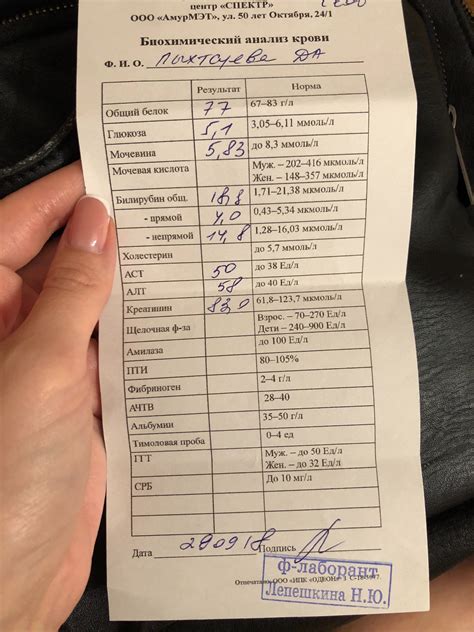 центр «СПЕКТР»
ООО «АмурМЭТ», ул. 50 лет Октября, 24/1
Биохимический анализ крови
Ф. И. О. ДА
Результат Норма
Общий белок 77 67–83 г/л
Глюкоза 5,1 3,05–6,11 ммоль/л
Мочевина 5,83 до 8,3 ммоль/л
Мочевая кислота Муж. – 202–416 мкмоль/л
Жен. – 148–357 мкмоль/л
Билирубин общ. 18,8 1,71–21,38 мкмоль/л
- прямой 4,0 0,43–5,34 мкмоль/л
- непрямой 14,8 1,28–16,03 мкмоль/л
Холестерин до 5,7 ммоль/л
АСТ 50 до 38 Ед/л
АЛТ 58 до 40 Ед/л
Креатинин 83,0 61,8–123,7 мкмоль/л
Щелочная ф-за Взрос. – 70–270 Ед/л
Дети – 240–900 Ед/л
Амилаза до 100 Ед/л
ПТИ 80–105%
Фибриноген 2–4 г/л
АЧТВ 28–40
Альбумин 35–50 г/л
Тимоловая проба 0–4 ед
ГГТ Муж. – до 50 Ед/л
Жен. – до 32 Ед/л
СРБ До 10 мг/л
Дата 290918 Подпись
ф-лаборант
Отпечатано ООО «ИПК «ОДЕОН»
Лепешкина Н.Ю.